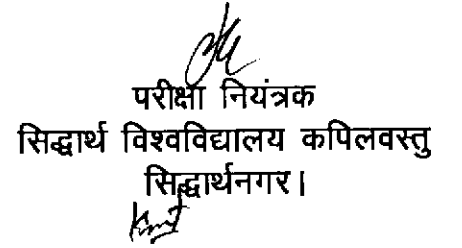 परीक्षा नियंत्रक
सिद्धार्थ विश्वविद्यालय कपिलवस्तु
सिद्धार्थनगर।